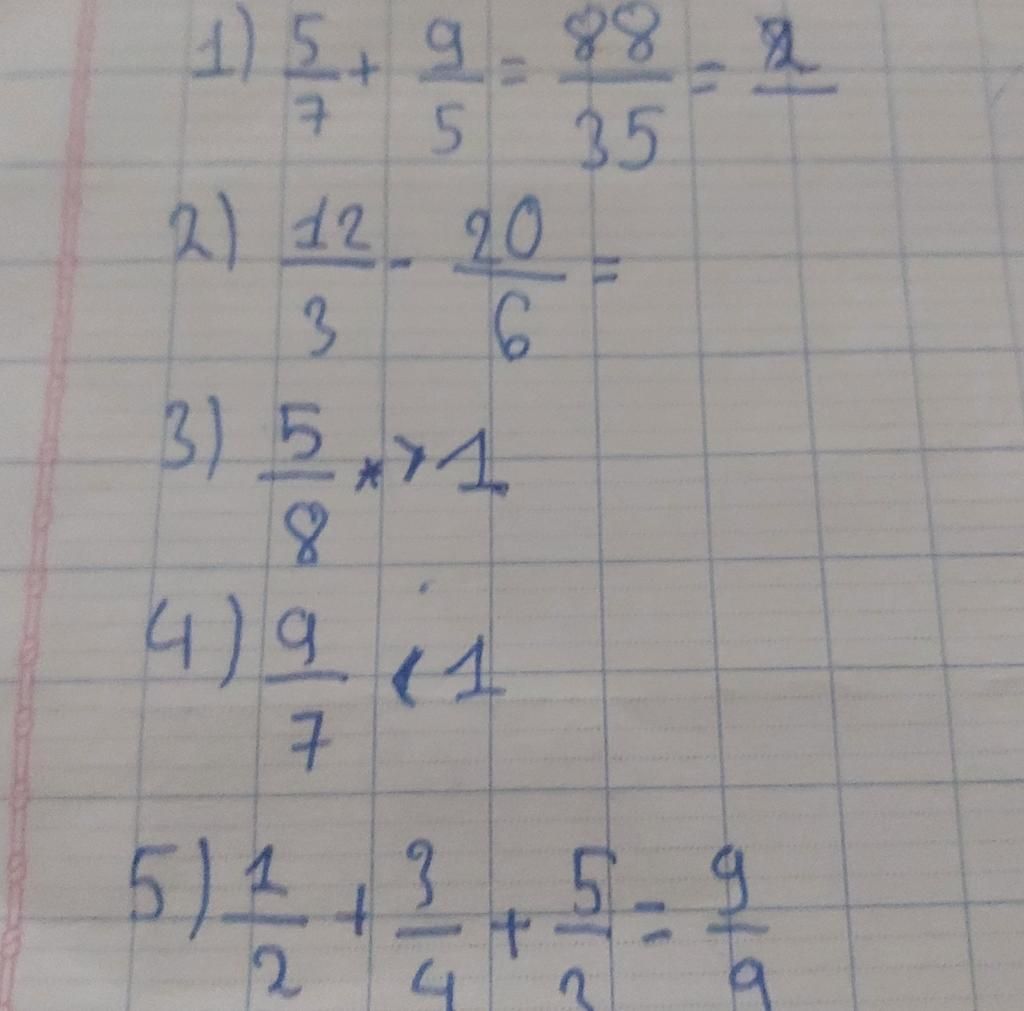 1) 5/7 + 9/5 = 88/35 =
2) 12/3 - 20/6 =
3) 5/8 > 1
4) 9/7 < 1
5) 1/2 + 3/4 + 5/ = 9/9